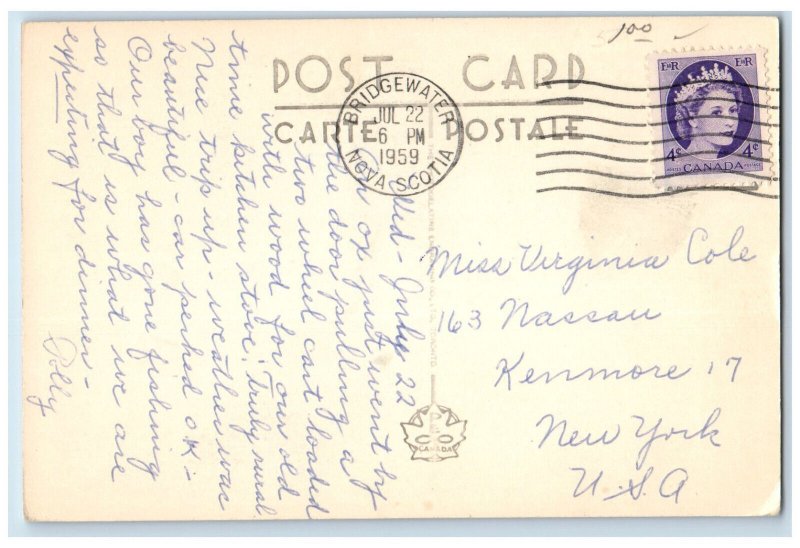 1.00
POST CARD
CARTE POSTALE
BRIDGEWATER
JUL 22
6 PM
1959
NOVA SCOTIA
E II R E II R
4¢ 4¢
CANADA
POSTES POSTAGE
Wed - July 22
An ox just went by
the door pulling a
two wheel cart loaded
with wood for our old
time kitchen stove. Truly rural.
Nice trip up - weather was
beautiful - car perked OK -
Our boy has gone fishing
so that is what we are
expecting for dinner -
Polly
Miss Virginia Cole
163 Nassau
Kenmore 17
New York
U.S.A
TORONTO
CANADA